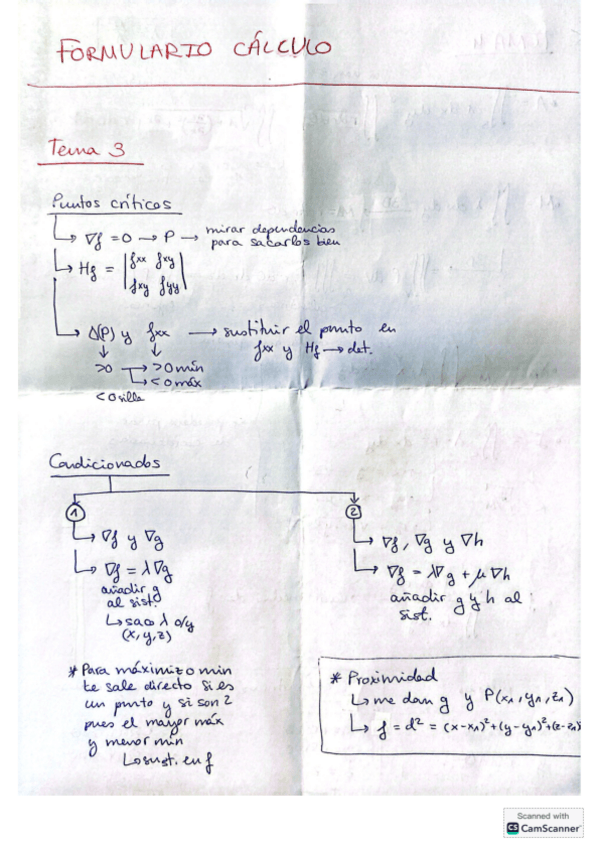 FORMULARIO CÁLCULO
Tema 3
Puntos críticos
↳ ∇f = 0 → P → mirar dependencias
para sacarlos bien
↳ Hf = |fxx fxy|
|fxy fyy|
↳ Δ(P) y fxx → sustituir el punto en
fxx y Hf → det.
↓ ↓
>0 → >0 mín
↳ <0 máx
<0 silla
Condicionados
1
↳ ∇f y ∇g
↳ ∇f = λ∇g
añadir g
al sist.
↳ saco λ o/y
(x, y, z)
* Para máximizo min
te sale directo si es
un punto y si son 2
pues el mayor máx
y menor mín
↳ sust. en f
2
↳ ∇f, ∇g y ∇h
↳ ∇f = λ∇g + μ∇h
añadir g y h al
sist.
* Proximidad
↳ me dan g y P(x₁, y₁, z₁)
↳ f = d² = (x-x₁)²+(y-y₁)²+(z-z₁)²
Scanned with
CS CamScanner